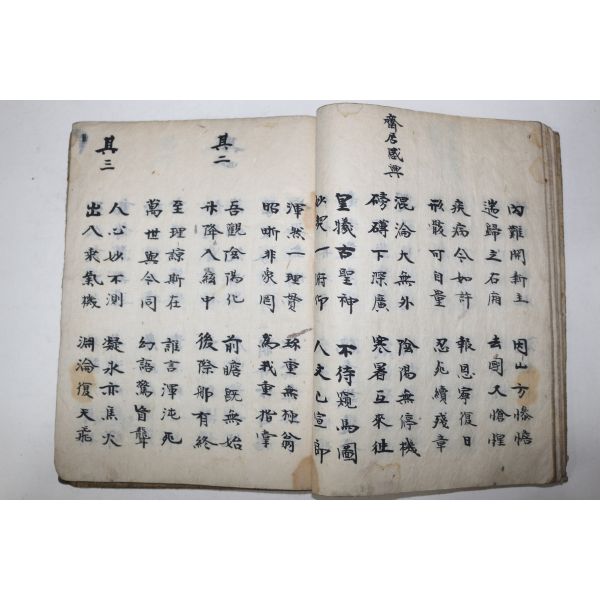 內難開新主 因山方慘憺
遄歸立右廂 去國又悽惶
疾病今如許 報恩寧復日
形骸可自量 忍死續殘章
齋居感興
混淪大無外 陰陽無停機
磅礴下深廣 寒暑互來往
皇犧古聖神 不待窺馬圖
妙契一俯仰 人文已宣朗
渾然一理貫 珍重無極翁
昭晰非象罔 爲我重指掌
其二
吾觀陰陽化 前瞻旣無始
升降八紘中 後際那有終
至理諒斯在 誰言渾沌死
萬世與今同 幻語驚盲聾
其三
人心妙不測 凝氷亦焦火
出入乘氣機 淵淪復天飛